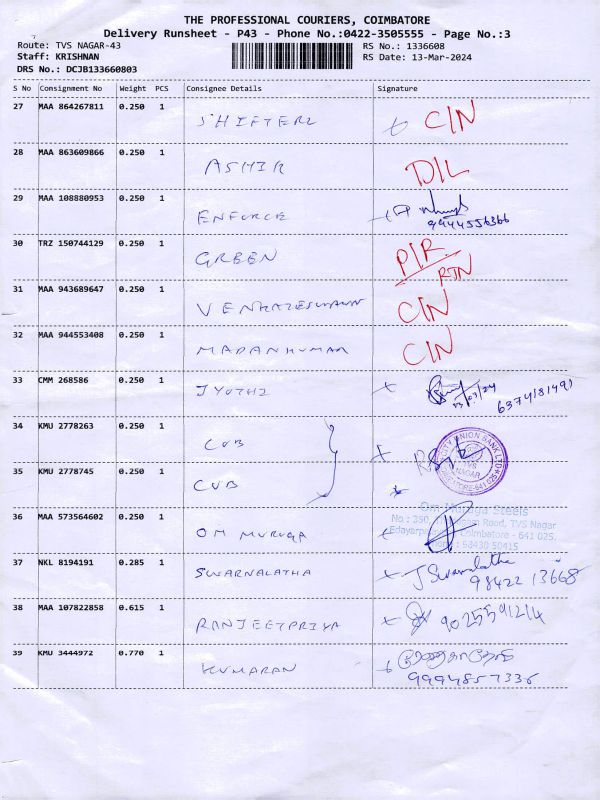 THE PROFESSIONAL COURIERS, COIMBATORE
Delivery Runsheet - P43 - Phone No.:0422-3505555 - Page No.:3
Route: TVS NAGAR-43 RS No.: 1336608
Staff: KRISHNAN RS Date: 13-Mar-2024
DRS No.: DCJB133660803
S No Consignment No Weight PCS Consignee Details Signature
27 MAA 864267811 0.250 1 SHIFTERZ C/N
28 MAA 863609866 0.250 1 ASHIR D/L
29 MAA 108880953 0.250 1 ENFORCE
9944556366
30 TRZ 150744129 0.250 1 GREEN P/R
RTN
31 MAA 943689647 0.250 1 C/N
32 MAA 944553408 0.250 1 MADANKUMAR C/N
33 CMM 268586 0.250 1 JYOTHI
13/03/24 6374181491
34 KMU 2778263 0.250 1 CUB
CITY UNION BANK LTD
TVS
NAGAR
COIMBATORE-641 025
35 KMU 2778745 0.250 1 CUB
Om Muruga Steels
No : 350, Road, TVS Nagar
36 MAA 573564602 0.250 1 OM MURUGA Coimbatore - 641 025.
98430 50415
37 NKL 8194191 0.285 1 SWARNALATHA J Swarnalatha
98422 13668
38 MAA 107822858 0.615 1 RANJEETPRIYA 9025591214
39 KMU 3444972 0.770 1 KUMARAN
9994857336